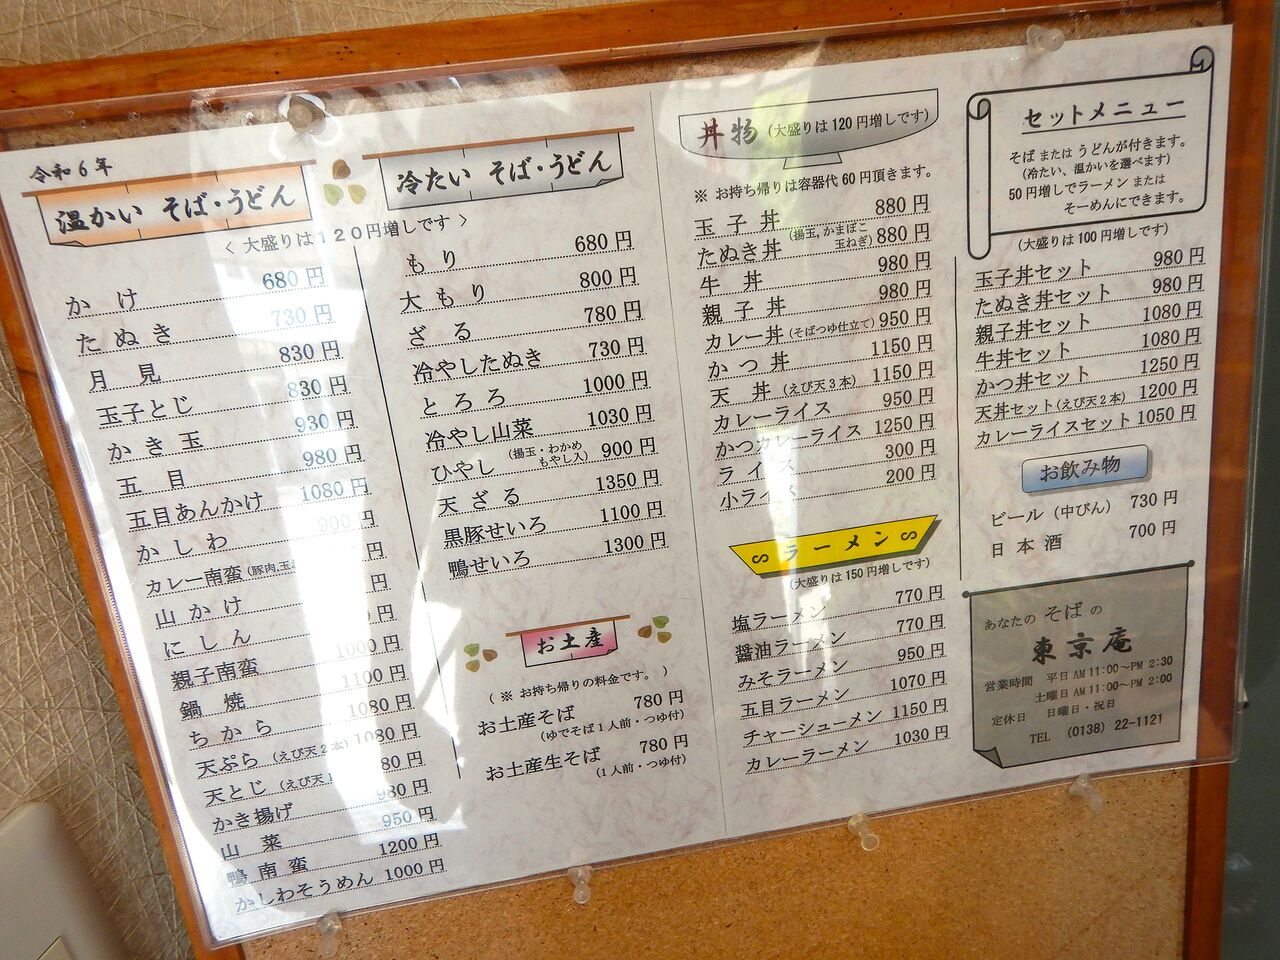 令和6年
温かい そば・うどん
冷たい そば・うどん
〈 大盛りは120円増しです 〉
かけ 680円
たぬき 730円
月見 830円
玉子とじ 830円
かき玉 930円
五目 980円
五目あんかけ 1080円
かしわ 900円
カレー南蛮(豚肉,玉 円
山かけ 円
にしん 円
親子南蛮 1000円
鍋焼 1100円
ちから 1080円
天ぷら(えび天2本) 1080円
天とじ(えび天 80円
かき揚げ 980円
山菜 950円
鴨南蛮 1200円
かしわそうめん 1000円
もり 680円
大もり 800円
ざる 780円
冷やしたぬき 730円
とろろ 1000円
冷やし山菜 1030円
ひやし(揚玉・わかめ もやし入) 900円
天ざる 1350円
黒豚せいろ 1100円
鴨せいろ 1300円
お土産
(※ お持ち帰りの料金です。)
お土産そば 780円
(ゆでそば1人前・つゆ付)
お土産生そば 780円
(1人前・つゆ付)
丼物(大盛りは120円増しです)
※ お持ち帰りは容器代60円頂きます。
玉子丼 880円
たぬき丼(揚玉,かまぼこ 玉ねぎ) 880円
牛丼 980円
親子丼 980円
カレー丼(そばつゆ仕立て) 950円
かつ丼 1150円
天丼(えび天3本) 1150円
カレーライス 950円
かつカレーライス 1250円
ライス 300円
小ライス 200円
ラーメン
(大盛りは150円増しです)
塩ラーメン 770円
醤油ラーメン 770円
みそラーメン 950円
五目ラーメン 1070円
チャーシューメン 1150円
カレーラーメン 1030円
セットメニュー
そば または うどんが付きます。
(冷たい、温かいを選べます)
50円増しでラーメン または
そーめんにできます。
(大盛りは100円増しです)
玉子丼セット 980円
たぬき丼セット 980円
親子丼セット 1080円
牛丼セット 1080円
かつ丼セット 1250円
天丼セット(えび天2本) 1200円
カレーライスセット 1050円
お飲み物
ビール(中びん) 730円
日本酒 700円
あなたの そばの
東京庵
営業時間 平日 AM 11:00～PM 2:30
土曜日 AM 11:00～PM 2:00
定休日 日曜日・祝日
TEL (0138) 22-1121